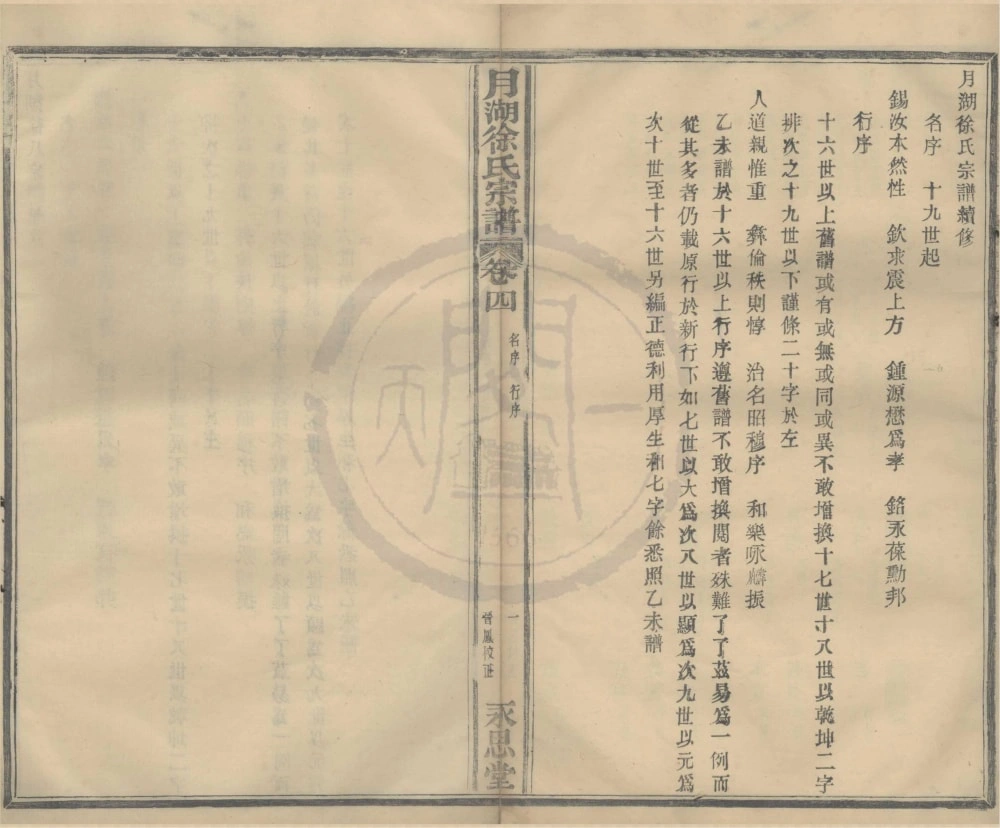 月湖徐氏宗譜續修
名序　十九世起
錫汝本然性　欽求震上方　鍾源懋爲孝　銘永葆勳邦
行序
十六世以上舊譜或有或無或同或異不敢增換十七世十八世以乾坤二字
排次之十九世以下謹條二十字於左
人道親惟重　彝倫秩則惇　治名昭穆序　和樂咏麟振
乙未譜於十六世以上行序遵舊譜不敢增換閱者殊難了了茲易爲一例而
從其多者仍載原行於新行下如七世以大爲次八世以顯爲次九世以元爲
次十世至十六世另編正德利用厚生和七字餘悉照乙未譜
月湖徐氏宗譜
卷四
名序　行序
一
晉鳳校正
永思堂